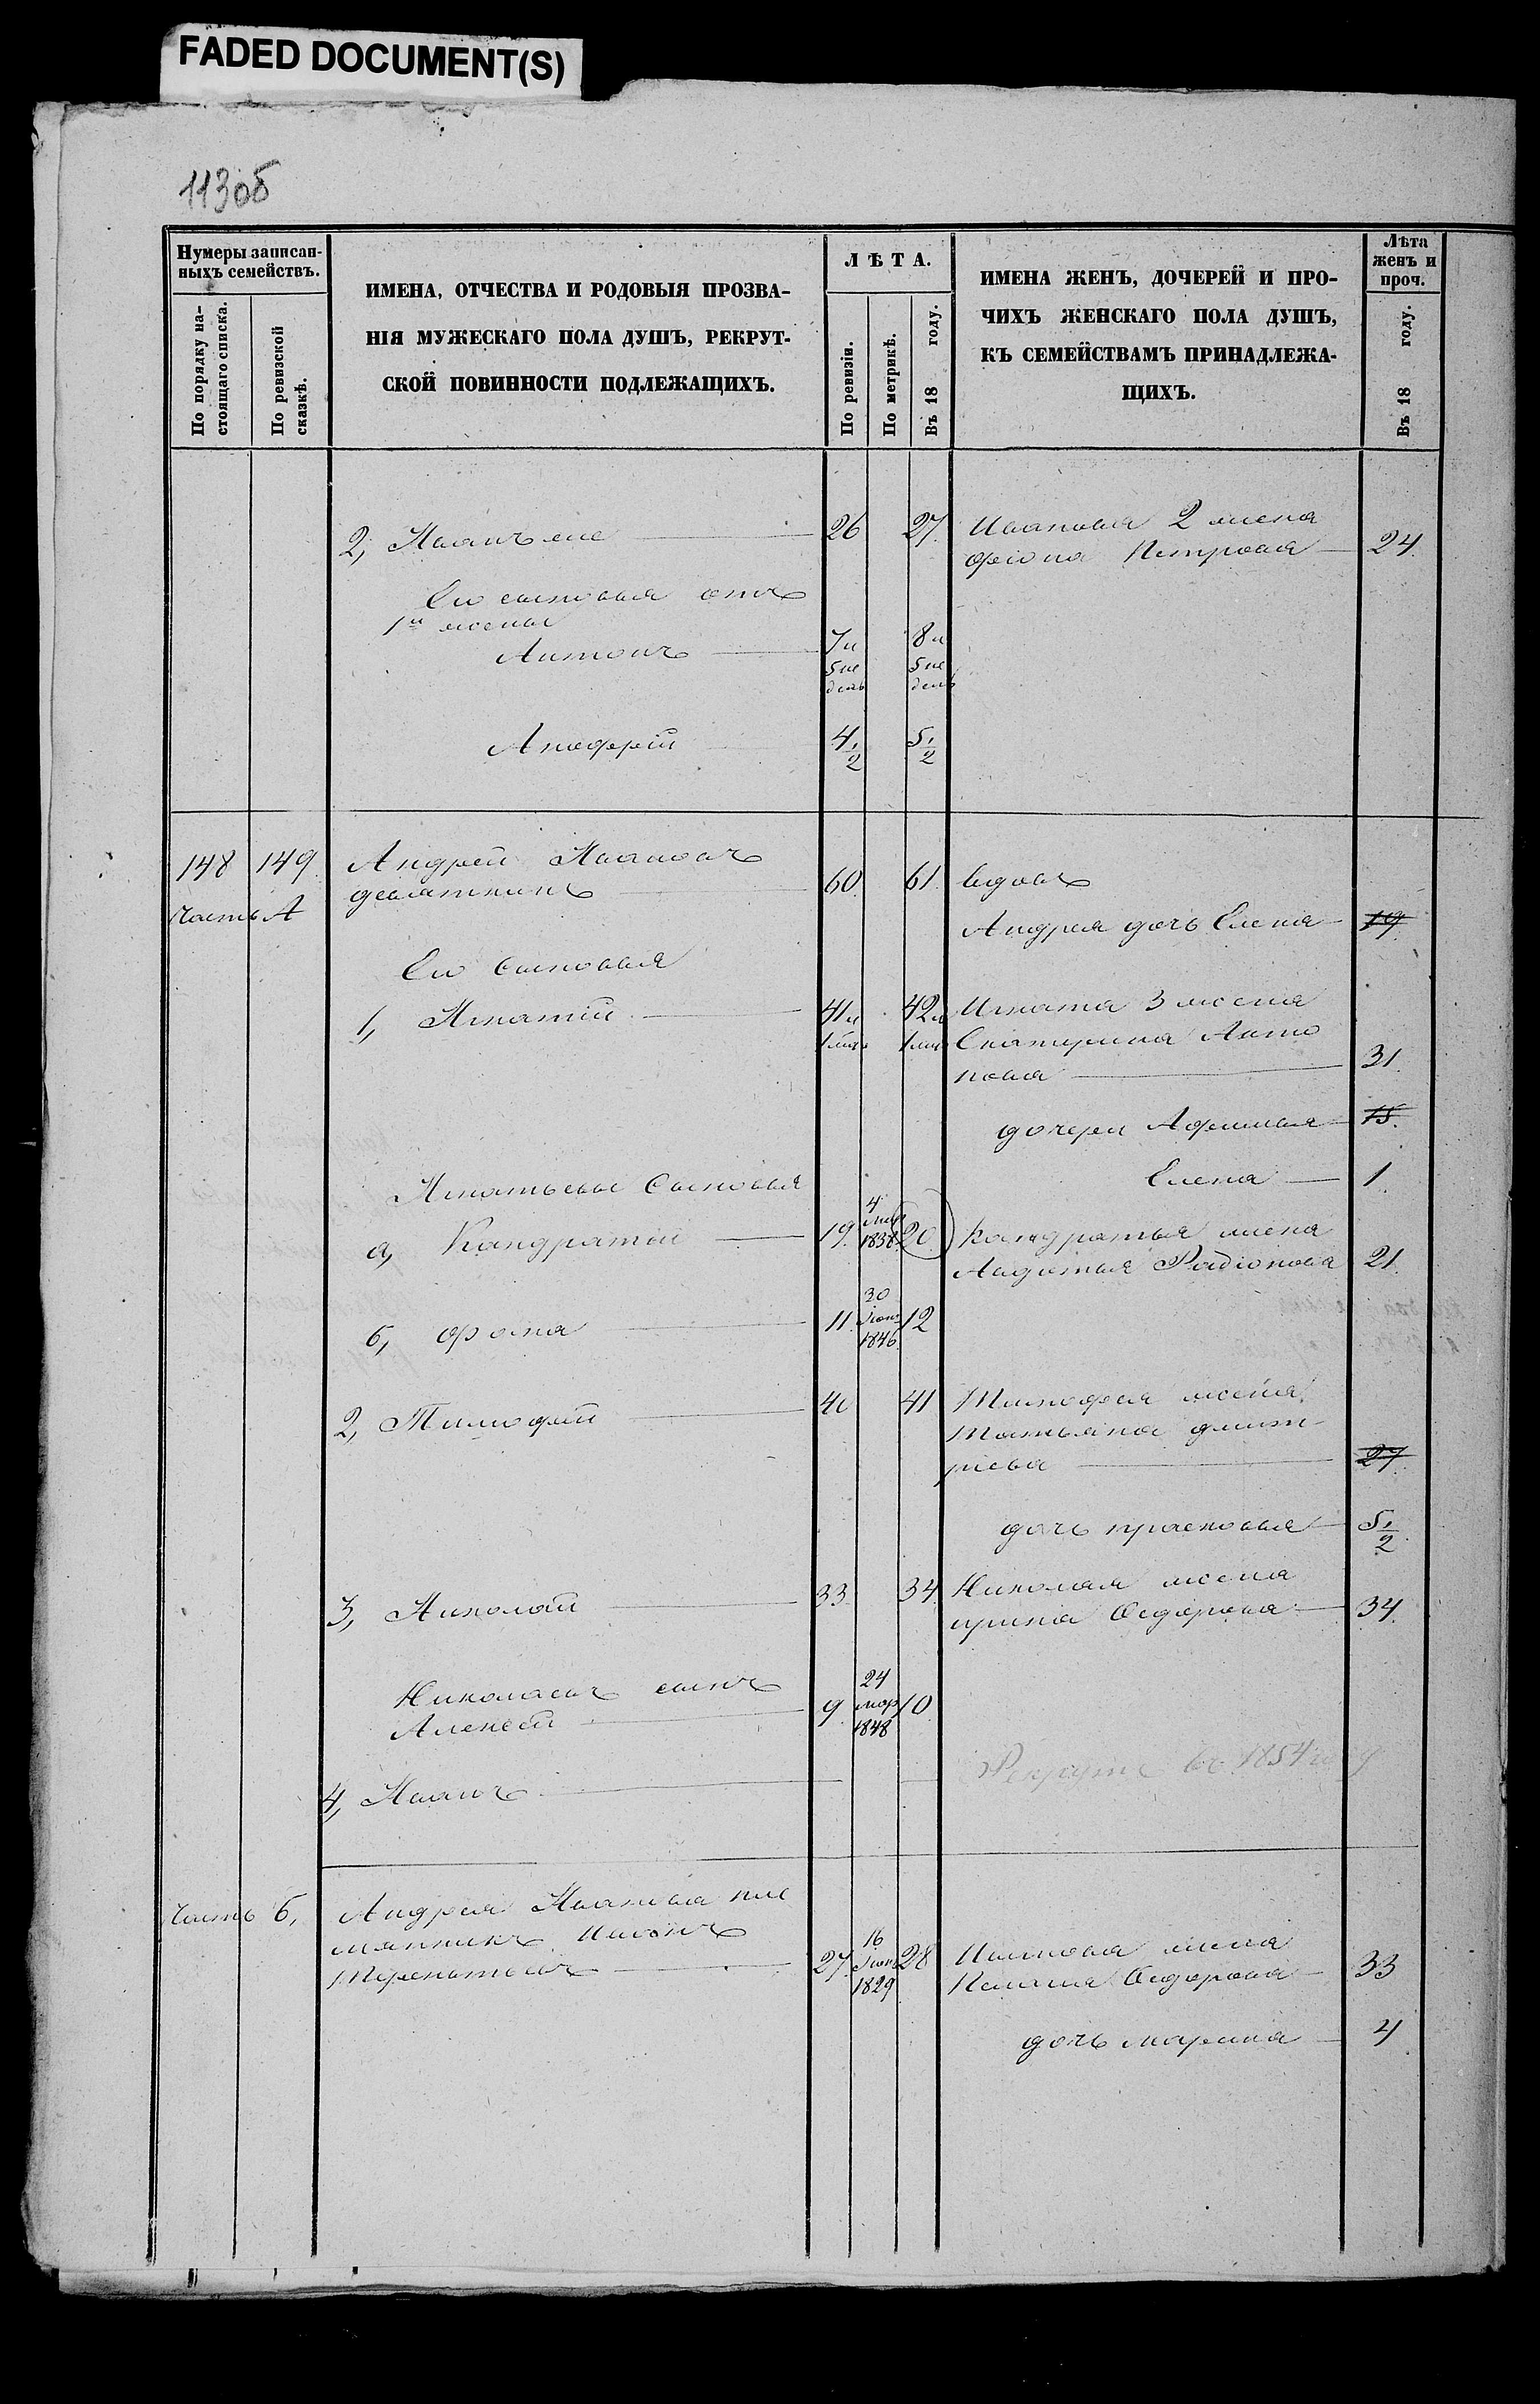 FADED DOCUMENT(S)
113об
Нумеры записан-
ныхъ семействъ.
По порядку на-
стоящаго списка.
По ревизской
сказкѣ.
ИМЕНА, ОТЧЕСТВА И РОДОВЫЯ ПРОЗВА-
НІЯ МУЖЕСКАГО ПОЛА ДУШЪ, РЕКРУТ-
СКОЙ ПОВИННОСТИ ПОДЛЕЖАЩИХЪ.
ЛѢТА.
По ревизіи.
По метрикѣ.
Въ 18 году.
ИМЕНА ЖЕНЪ, ДОЧЕРЕЙ И ПРО-
ЧИХЪ ЖЕНСКАГО ПОЛА ДУШЪ,
КЪ СЕМЕЙСТВАМЪ ПРИНАДЛЕЖА-
ЩИХЪ.
Лѣта
женъ и
проч.
Въ 18 году.
2, Иванъ 26 27 Иванова 2 жена
Петрова 24.
Его сыновья отъ
1й жены
Антонъ 7м 8м
5не 5не
дель дель
4 1/2 5 1/2
148 149. Андрей Ивановъ
девяткинъ 60. 61. вдовъ
Часть А
Андрея дочь Елена 19.
Его Сыновья
1, Игнатій 41и 42и Игната 3 жена
1 1 Екатерина Анто
нова 31.
дочери Афимья 15.
Елена 1.
Игнатьевы Сыновья
а, Кандратій 19. 4 1838. 20. Кандратья жена
Авдотья Радіонова 21.
б, фома 11. 30 Іюня 1846. 12
2, Тимофей 40 41 Тимофея жена
Татьяна дмит
ріева 27.
дочь прасковья 5 1/2
3, Николай 33. 34. Николая жена
ирина Федорова 34.
Николаевъ сынъ
Алексей 9. 24 мар 1848 10.
4, Иванъ Рекрутъ въ 1854 году
Часть б, Андрея Иванова пле
мянникъ
Терентьевъ 27. 16 Іюня 1829 28 жена
Федорова 33
дочь марина 4